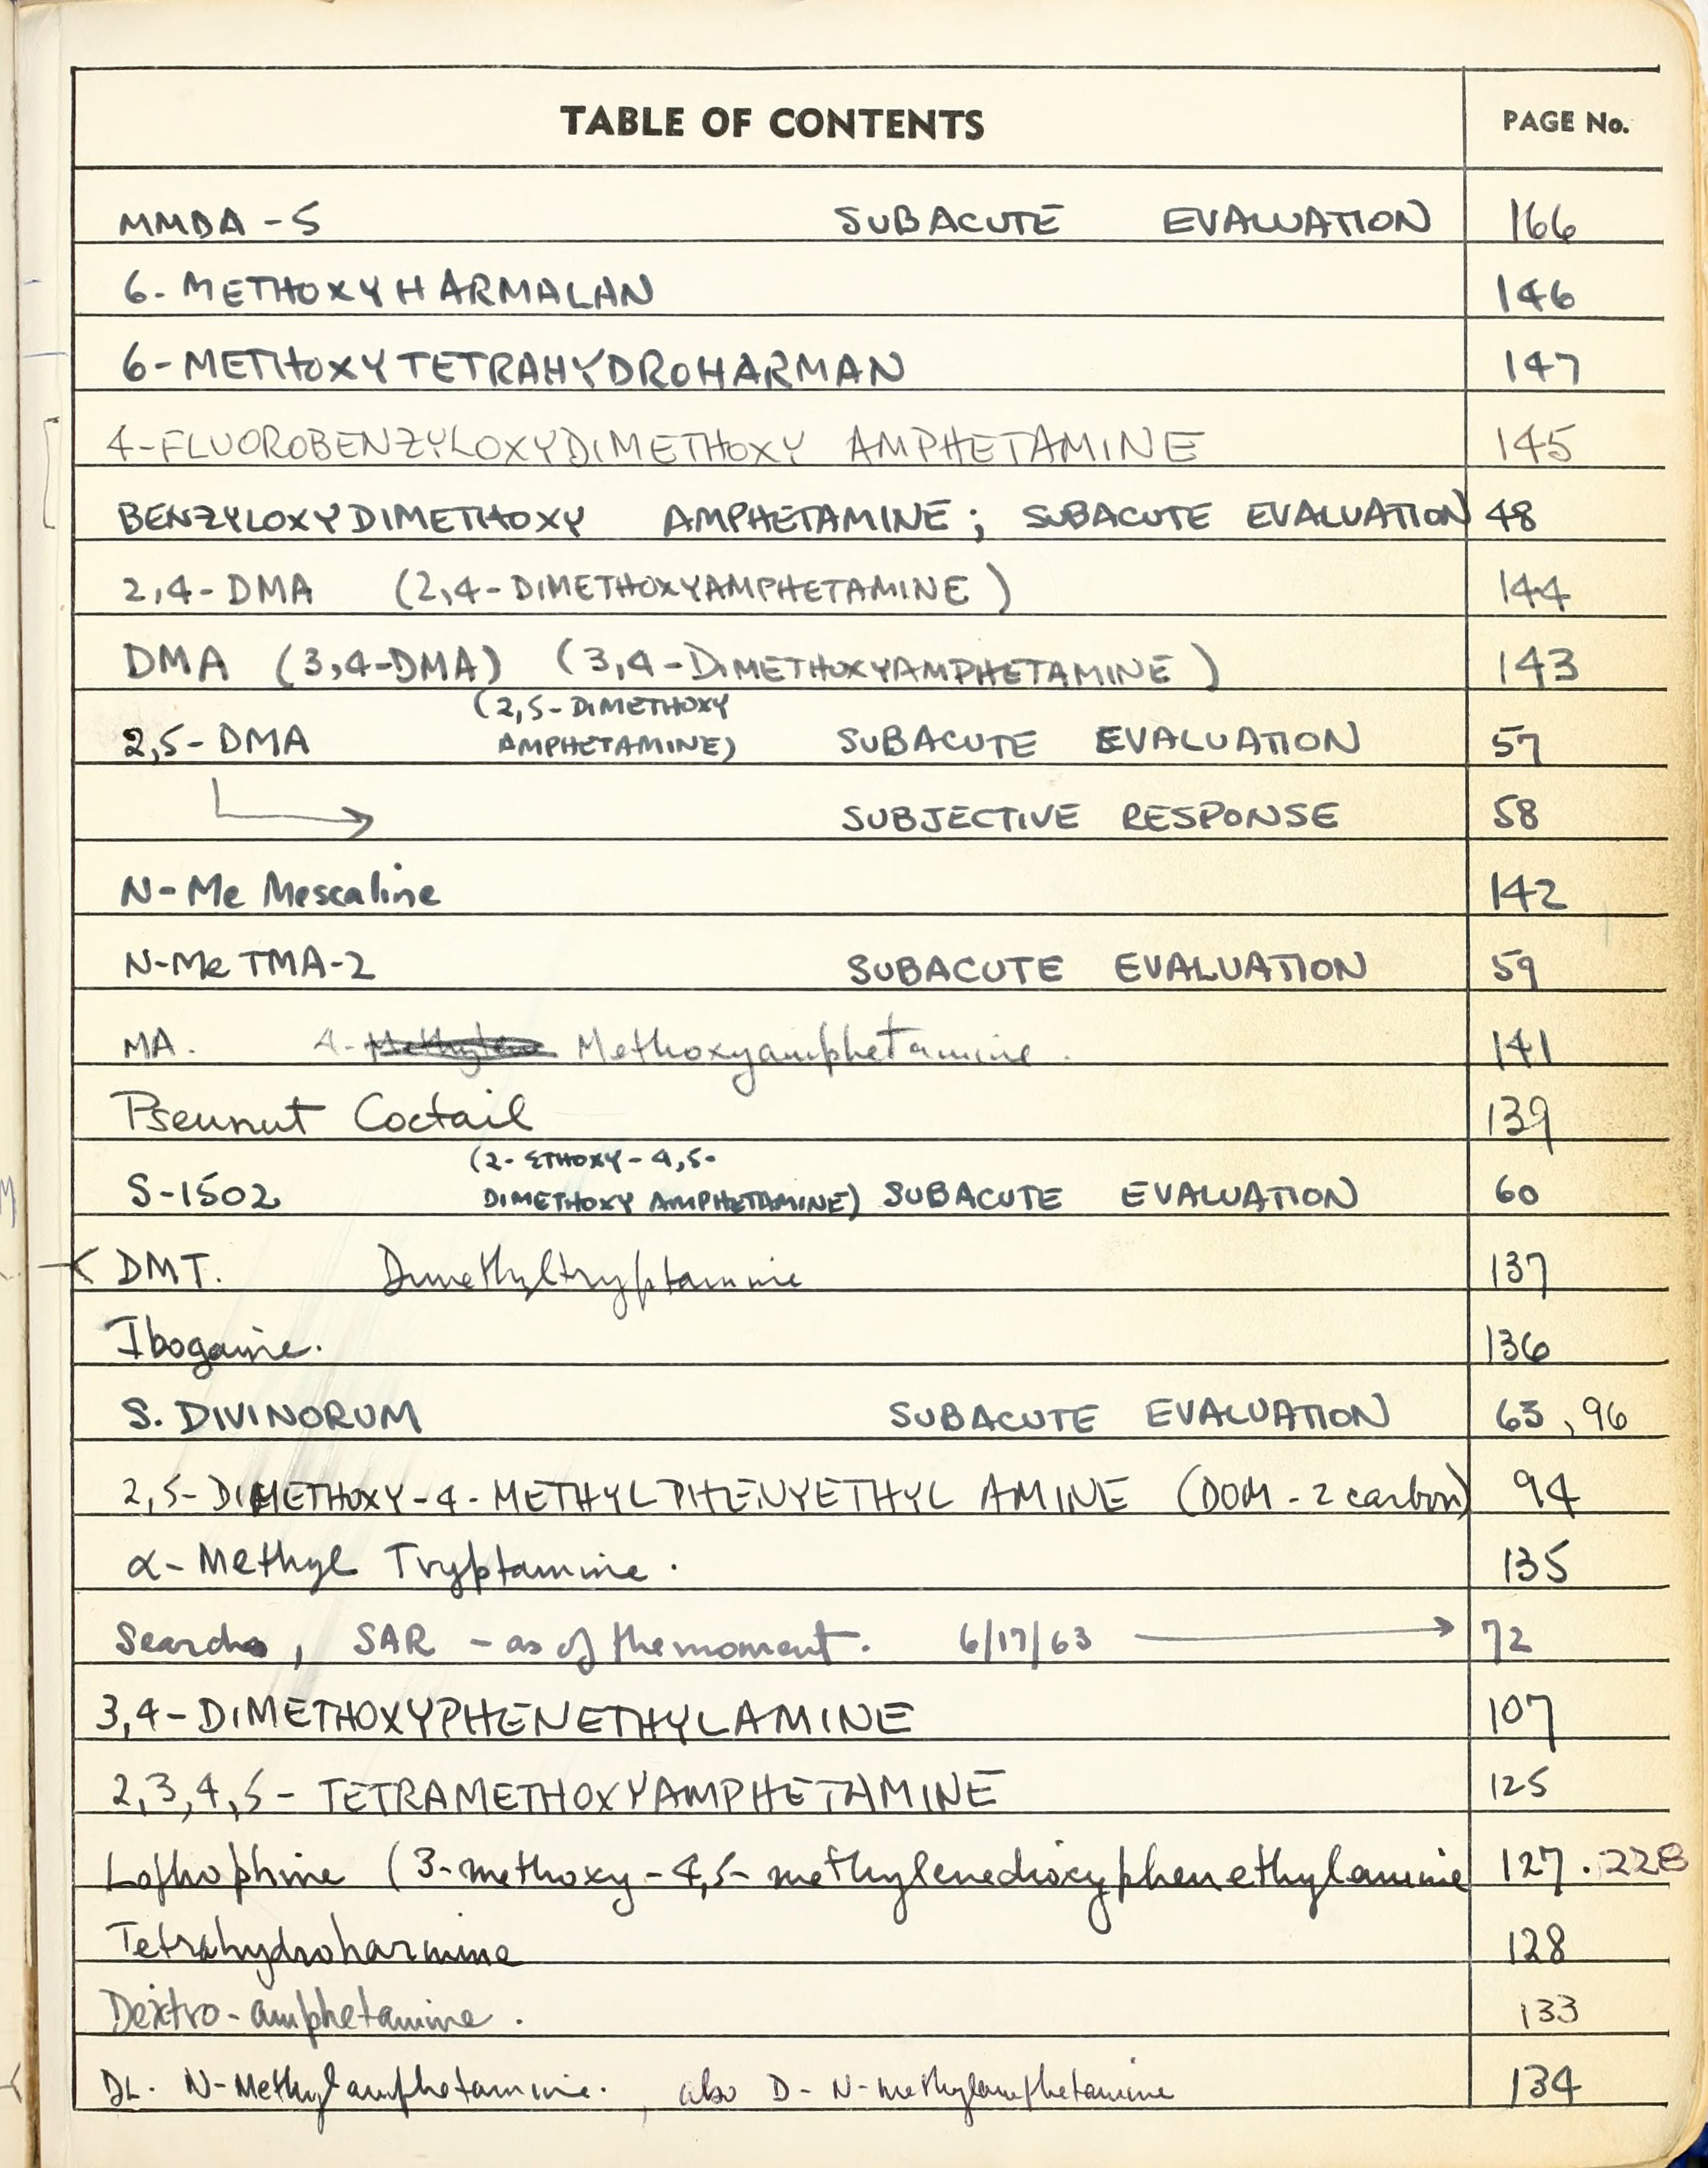 TABLE OF CONTENTS PAGE No.
MMDA-5 SUBACUTE EVALUATION 166
6-METHOXYHARMALAN 146
6-METHOXYTETRAHYDROHARMAN 147
4-FLUOROBENZYLOXYDIMETHOXY AMPHETAMINE 145
BENZYLOXYDIMETHOXY AMPHETAMINE; SUBACUTE EVALUATION 48
2,4-DMA (2,4-DIMETHOXYAMPHETAMINE) 144
DMA (3,4-DMA) (3,4-DIMETHOXYAMPHETAMINE) 143
(2,5-DIMETHOXY
2,5-DMA AMPHETAMINE) SUBACUTE EVALUATION 57
SUBJECTIVE RESPONSE 58
N-Me Mescaline 142
N-Me TMA-2 SUBACUTE EVALUATION 59
MA. 4- Methoxyamphetamine. 141
Pseunut Coctail 139
(2-ETHOXY-4,5-
S-1502 DIMETHOXY AMPHETAMINE) SUBACUTE EVALUATION 60
DMT. Dimethyltryptamine 137
Ibogaine. 136
S. DIVINORUM SUBACUTE EVALUATION 63, 96
2,5-DIMETHOXY-4-METHYLPHENYETHYL AMINE (DOM - 2 carbon) 94
α-Methyl Tryptamine. 135
, SAR - as of the moment. 6/17/63 → 72
3,4-DIMETHOXYPHENETHYLAMINE 107
2,3,4,5-TETRAMETHOXYAMPHETAMINE 125
Lophophine (3-methoxy-4,5-methylenedioxyphenethylamine 127.228
Tetrahydroharmine 128
Dextro-amphetamine. 133
DL. N-Methylamphetamine., also D-N-methylamphetamine 134